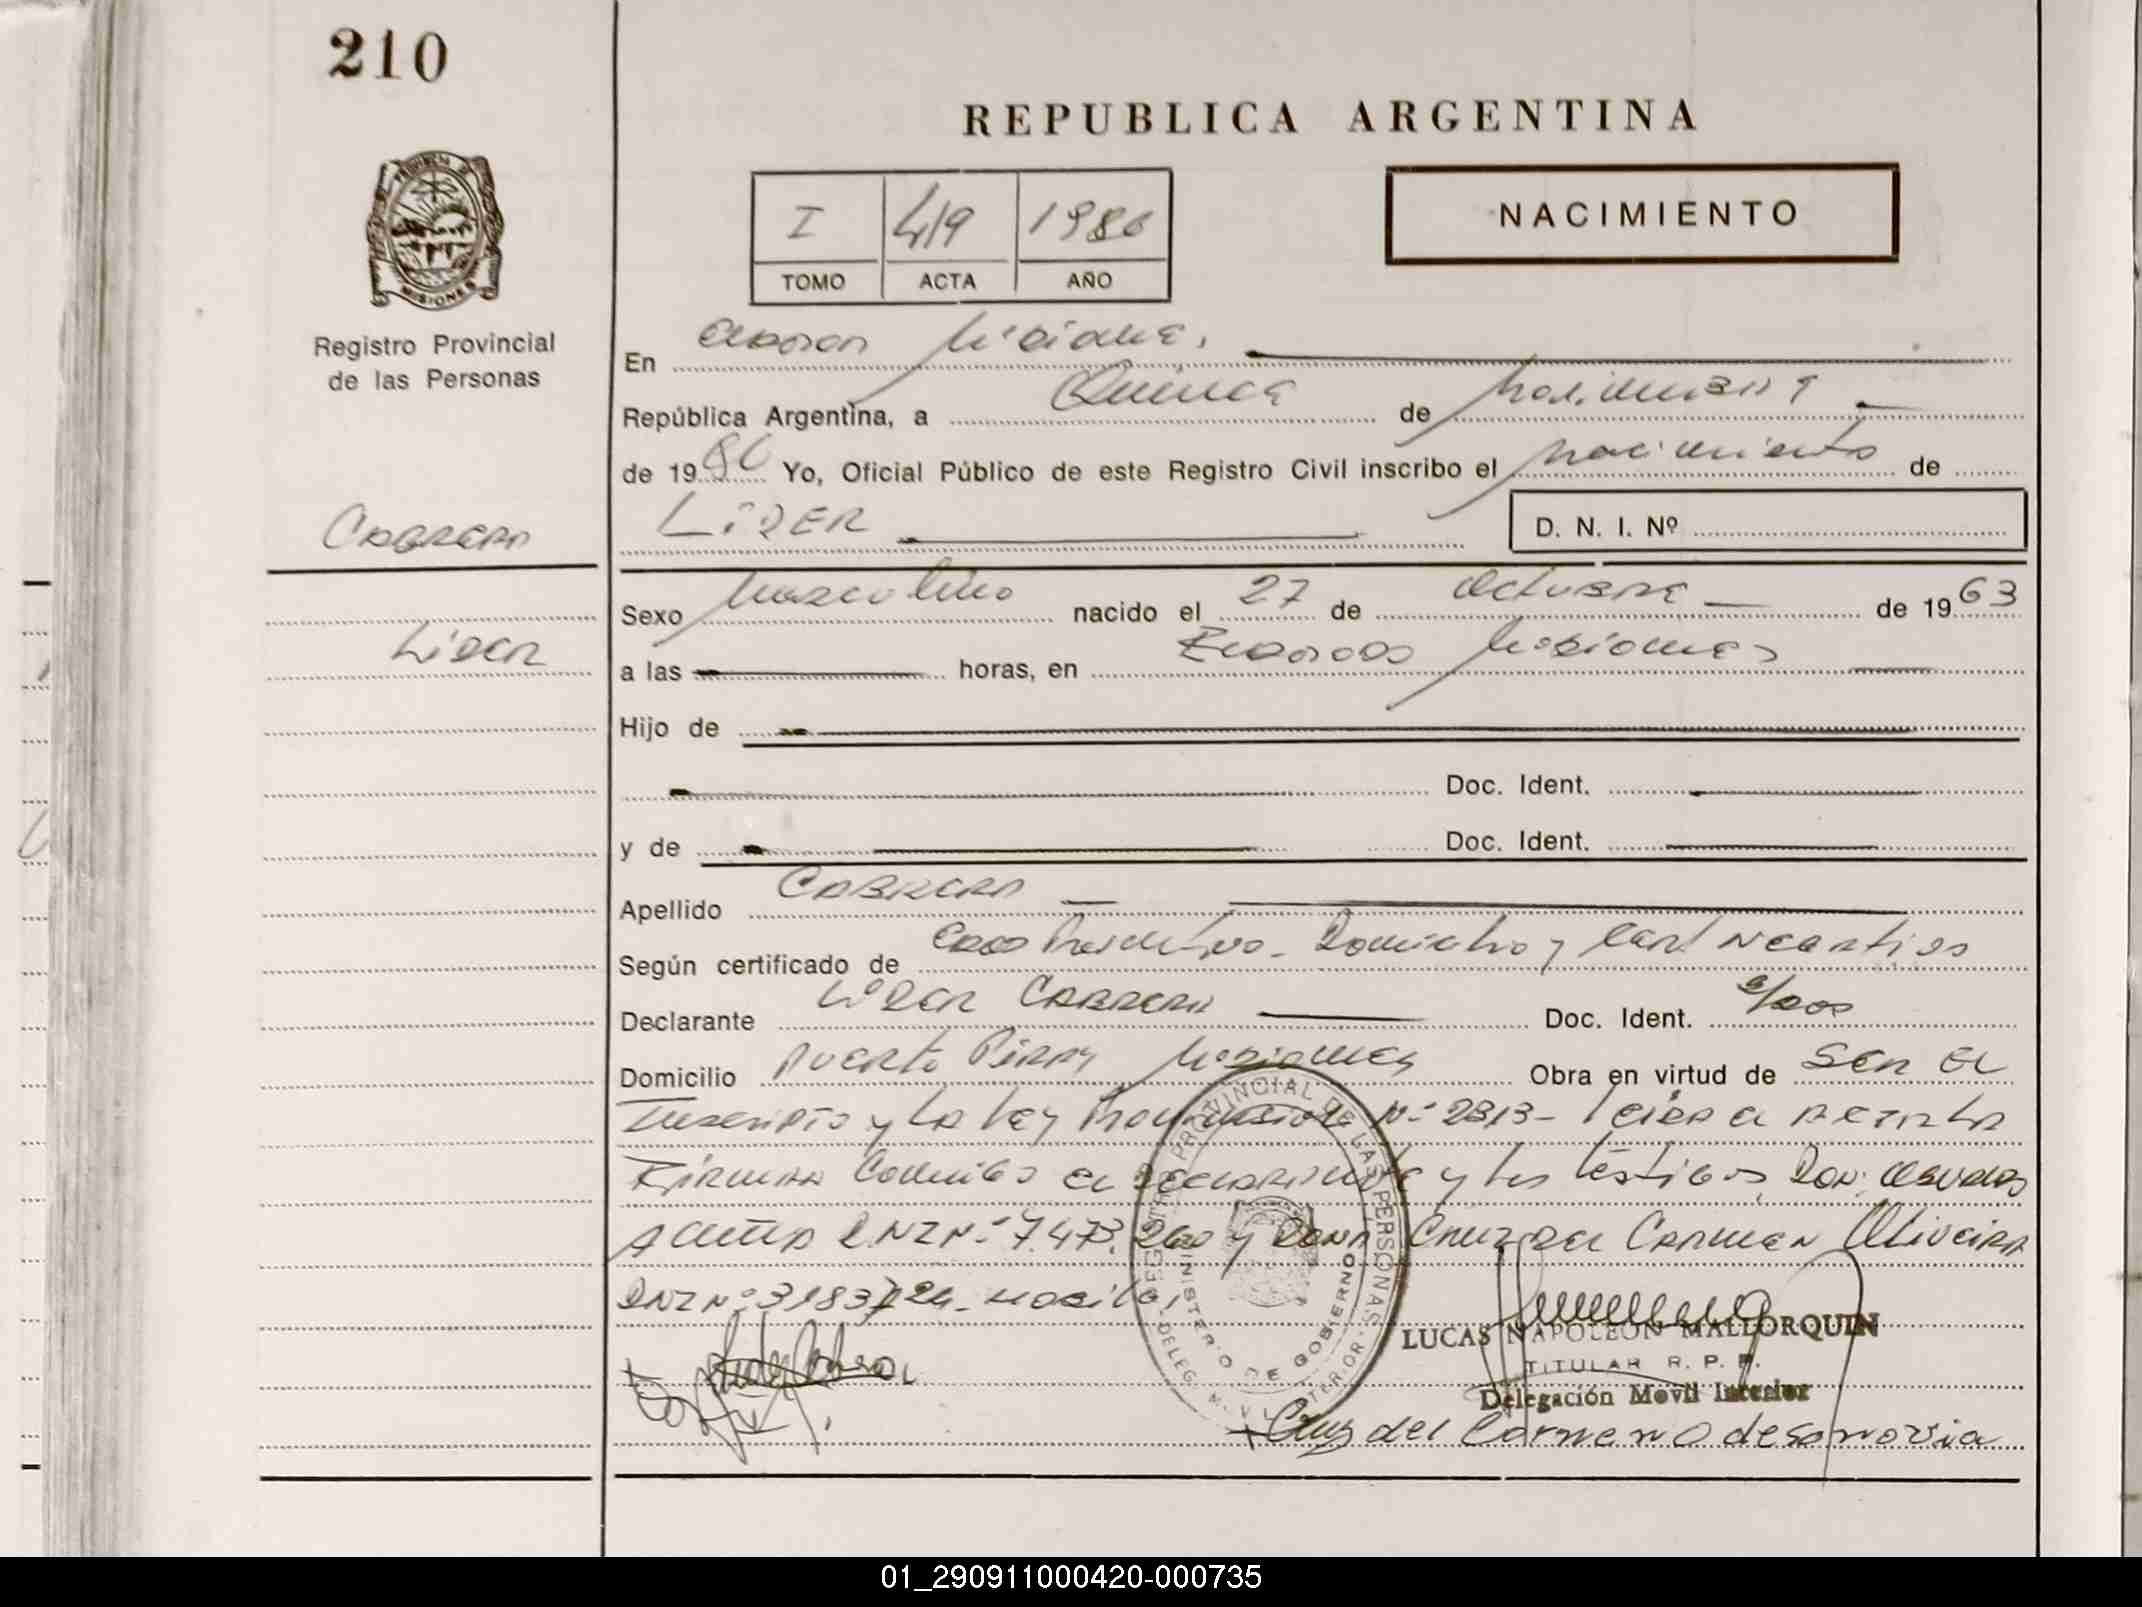 210
REPUBLICA ARGENTINA
I 419 1986
TOMO ACTA AÑO
NACIMIENTO
MISIONES
Registro Provincial
de las Personas
En Eldorado Misiones.
República Argentina, a Quince de Noviembre
de 1986 Yo, Oficial Público de este Registro Civil inscribo el nacimiento de
LIDER
D. N. I. Nº
CABRERA
Lider
Sexo Masculino nacido el 27 de Octubre de 1963
a las horas, en Eldorado Misiones
Hijo de
Doc. Ident.
y de Doc. Ident.
Apellido CABRERA
Según certificado de
Declarante Lider CABRERA Doc. Ident.
Domicilio Puerto Piray Misiones Obra en virtud de SER EL
Inscripto y La Ley Provincial Nº 2313- Leida el Acta La
Firman Conmigo el Declarante y los testigos, Don:
Acuña D.N.I Nº 7.473.260 y Doña Cruz del Carmen Oliveira
DNI Nº 3183724
REGISTRO PROVINCIAL DE LAS PERSONAS
MINISTERIO DE GOBIERNO
DELEG. MOVIL INTERIOR
LUCAS NAPOLEON MALLORQUIN
TITULAR R. P. P.
Delegación Movil Interior
Cruz del Carmen O de
01_290911000420-000735